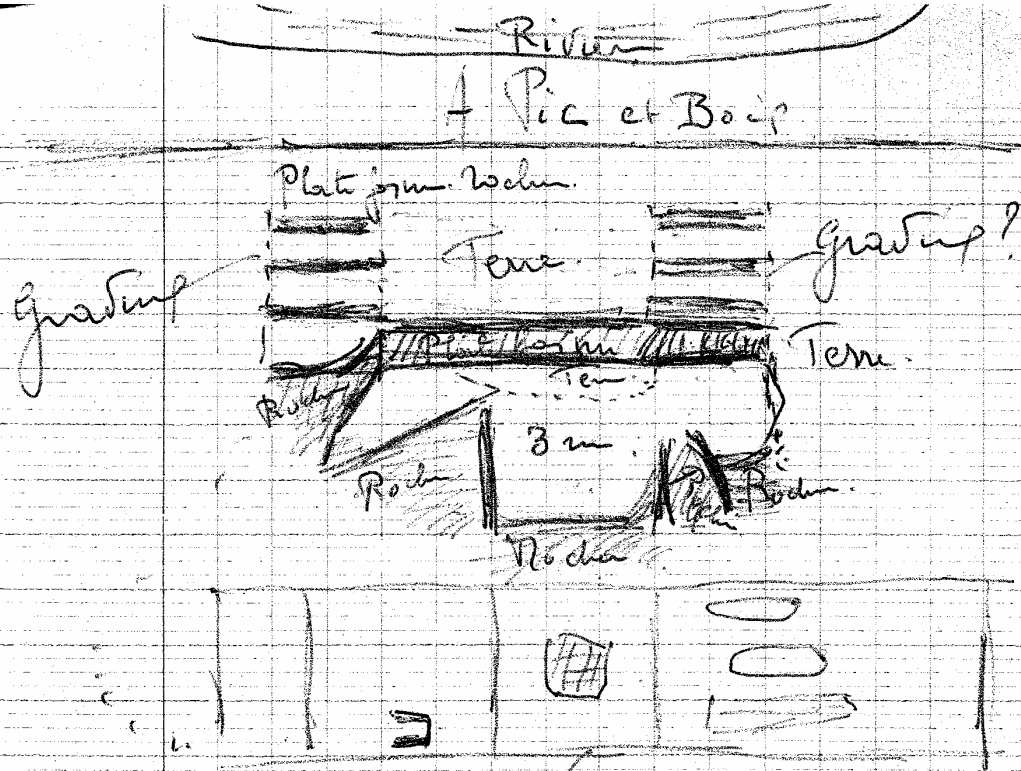 Rivière
A Pic et Bois
Plate forme rocher.
Terre.
Gradins
Gradins ?
Plate forme
Terre.
Terre
Rocher
3 m.
Rocher
Rocher.
Rocher